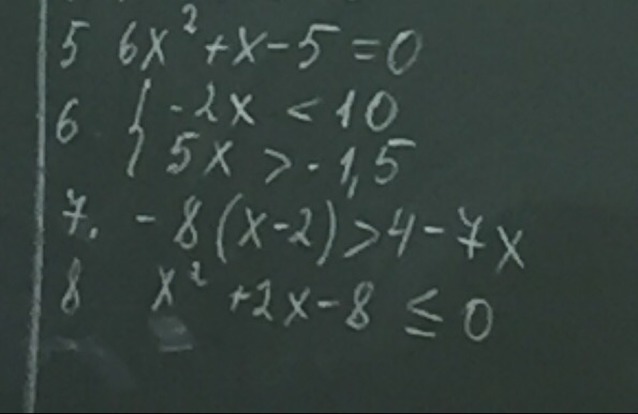 5 6x²+x-5=0
6 { -2x < 10
5x > -1,5
7. -8(x-2)>4-7x
8 x²+2x-8 ≤ 0